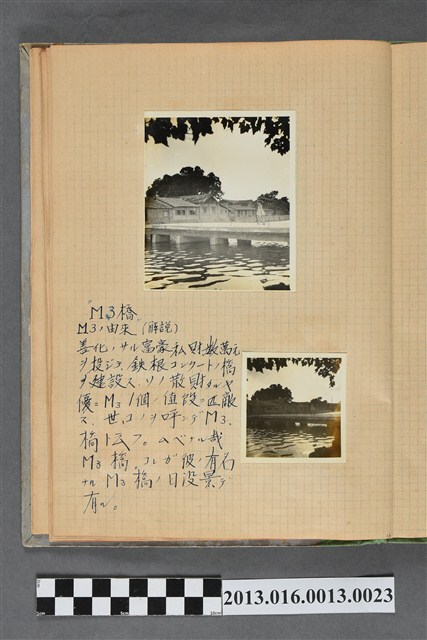 "M3橋"
M3ノ由来(解説)
善化ノサル富豪私財数萬元
ヲ投ジテ鉄根コンクリートノ橋
ヲ建設ス、ソノ散財タルヤ
優ニM3ノ個ノ値段ニ匹敵
ス、世コノヲ呼ンデM3、
橋ト云フ。ムベナル哉
M3橋。コレガ彼ノ有名
ナルM3橋ノ日没景デ
有ル。
2013.016.0013.0023